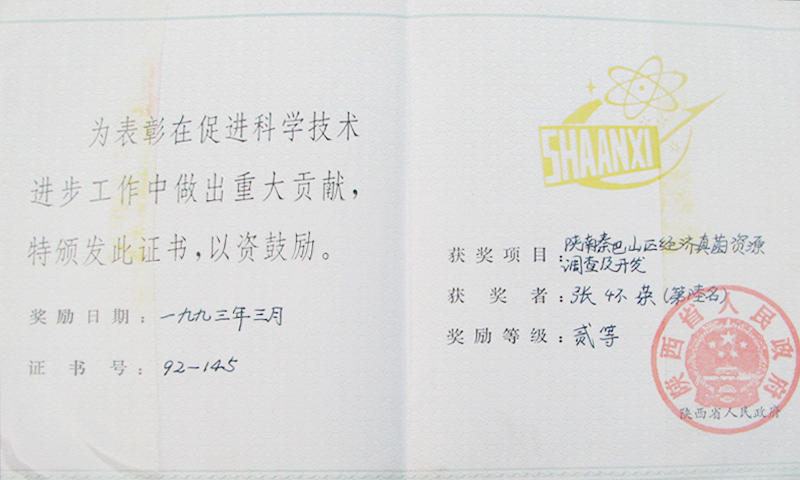 为表彰在促进科学技术
进步工作中做出重大贡献,
特颁发此证书,以资鼓励。
奖励日期:一九九三年三月
证书号:92-145
SHAANXI
获奖项目:陕南秦巴山区经济真菌资源
调查及开发
获奖者:张怀(第陆名)
奖励等级:贰等
陕西省人民政府
陕西省人民政府